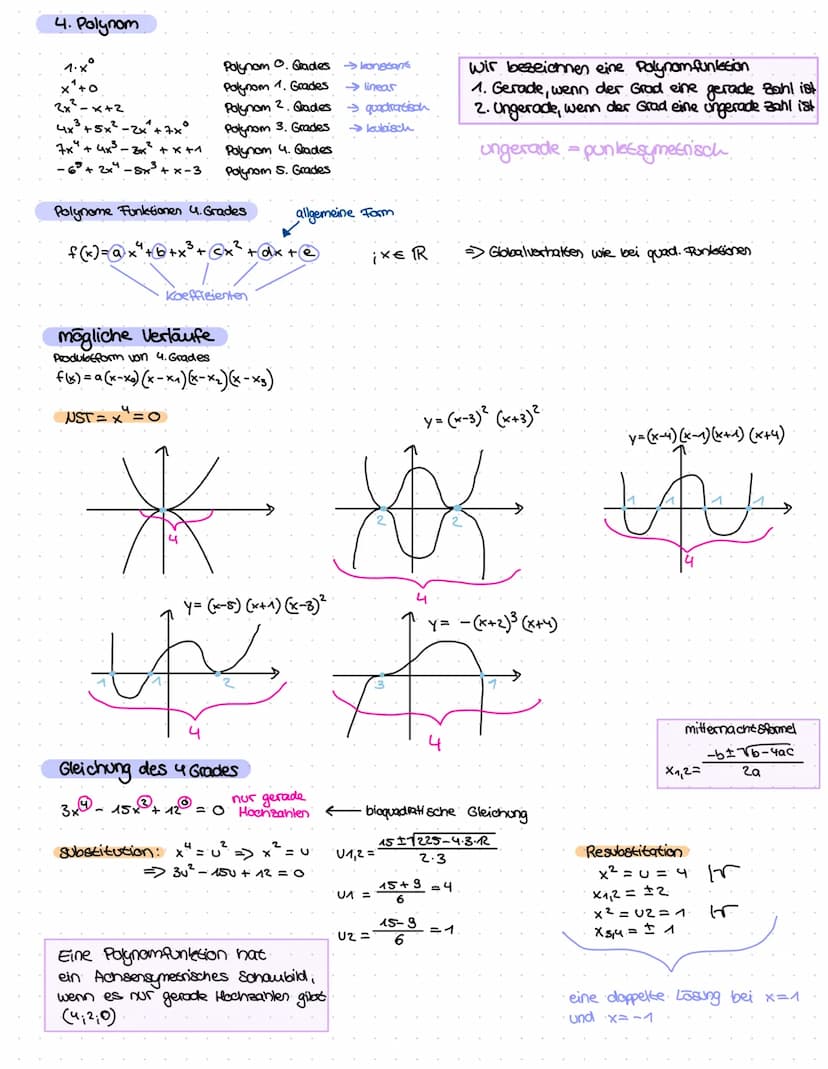 4. Polynom
1·x⁰ Polynom 0. Grades → konstant
x¹+0 Polynom 1. Grades → linear
2x² - x+2 Polynom 2. Grades → quadratisch
4x³+5x²-2x¹+7x⁰ Polynom 3. Grades → kubisch
7x⁴+4x³-3x²+x+1 Polynom 4. Grades
-6⁵+2x⁴-5x³+x-3 Polynom 5. Grades
Wir bezeichnen eine Polynomfunktion
1. Gerade, wenn der Grad eine gerade Zahl ist
2. Ungerade, wenn der Grad eine ungerade Zahl ist
ungerade = punktsymetrisch
Polynome Funktionen 4. Grades
allgemeine Form
f(x)=a x⁴+b+x³+cx²+dx+e ; x∈ℝ ⇒ Globalverhalten wie bei quad. Funktionen
Koeffizienten
mögliche Verläufe
Produktform von 4. Grades
f(x)=a(x-x₀)(x-x₁)(x-x₂)(x-x₃)
NST= x⁴=0
y=(x-3)² (x+3)²
y=(x-4)(x-1)(x+1)(x+4)
4
2 2
4
1 1 1 1
4
y=(x-5)(x+1)(x-3)²
1 1 2
4
y= -(x+2)³(x+4)
3 1
4
mitternachtsformel
x₁,₂= -b±√b-4ac / 2a
Gleichung des 4 Grades
3x⁴ - 15x² + 12⁰ = 0 nur gerade Hochzahlen ← bioquadratische Gleichung
Substitution: x⁴ = u² ⇒ x² = u
⇒ 3u² - 15u + 12 = 0
u1,2= 15±√225-4·3·12 / 2·3
u1 = 15+9 / 6 =4
u2= 15-9 / 6 =1
Resubstitation
x² = u = 4 |√
x₁,₂ = ±2
x² = u2 = 1 |√
x₃,₄ = ± 1
eine doppelte Lösung bei x=1
und x=-1
Eine Polynomfunktion hat
ein Achsensymetrisches Schaubild,
wenn es nur gerade Hochzahlen gibt
(4;2;0)